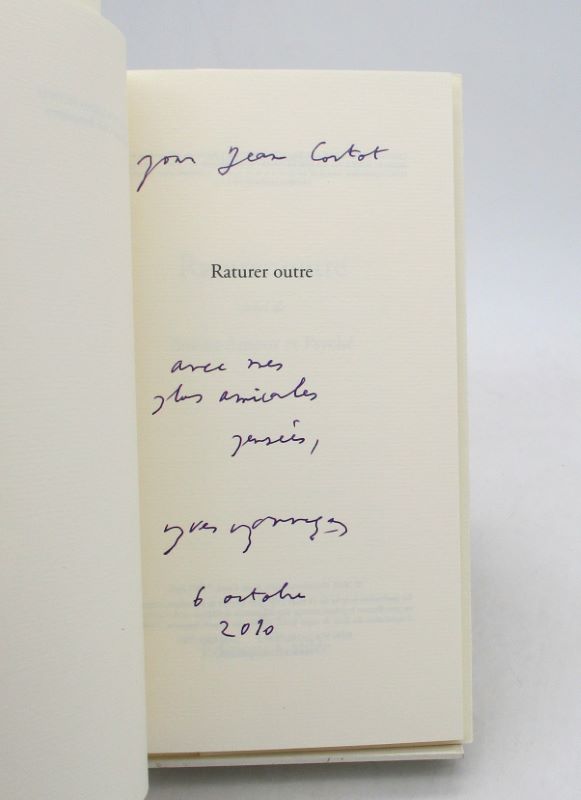 pour Jean Cortot
Raturer outre
avec mes
plus amicales
pensées,
Yves Bonnefoy
6 octobre
2010